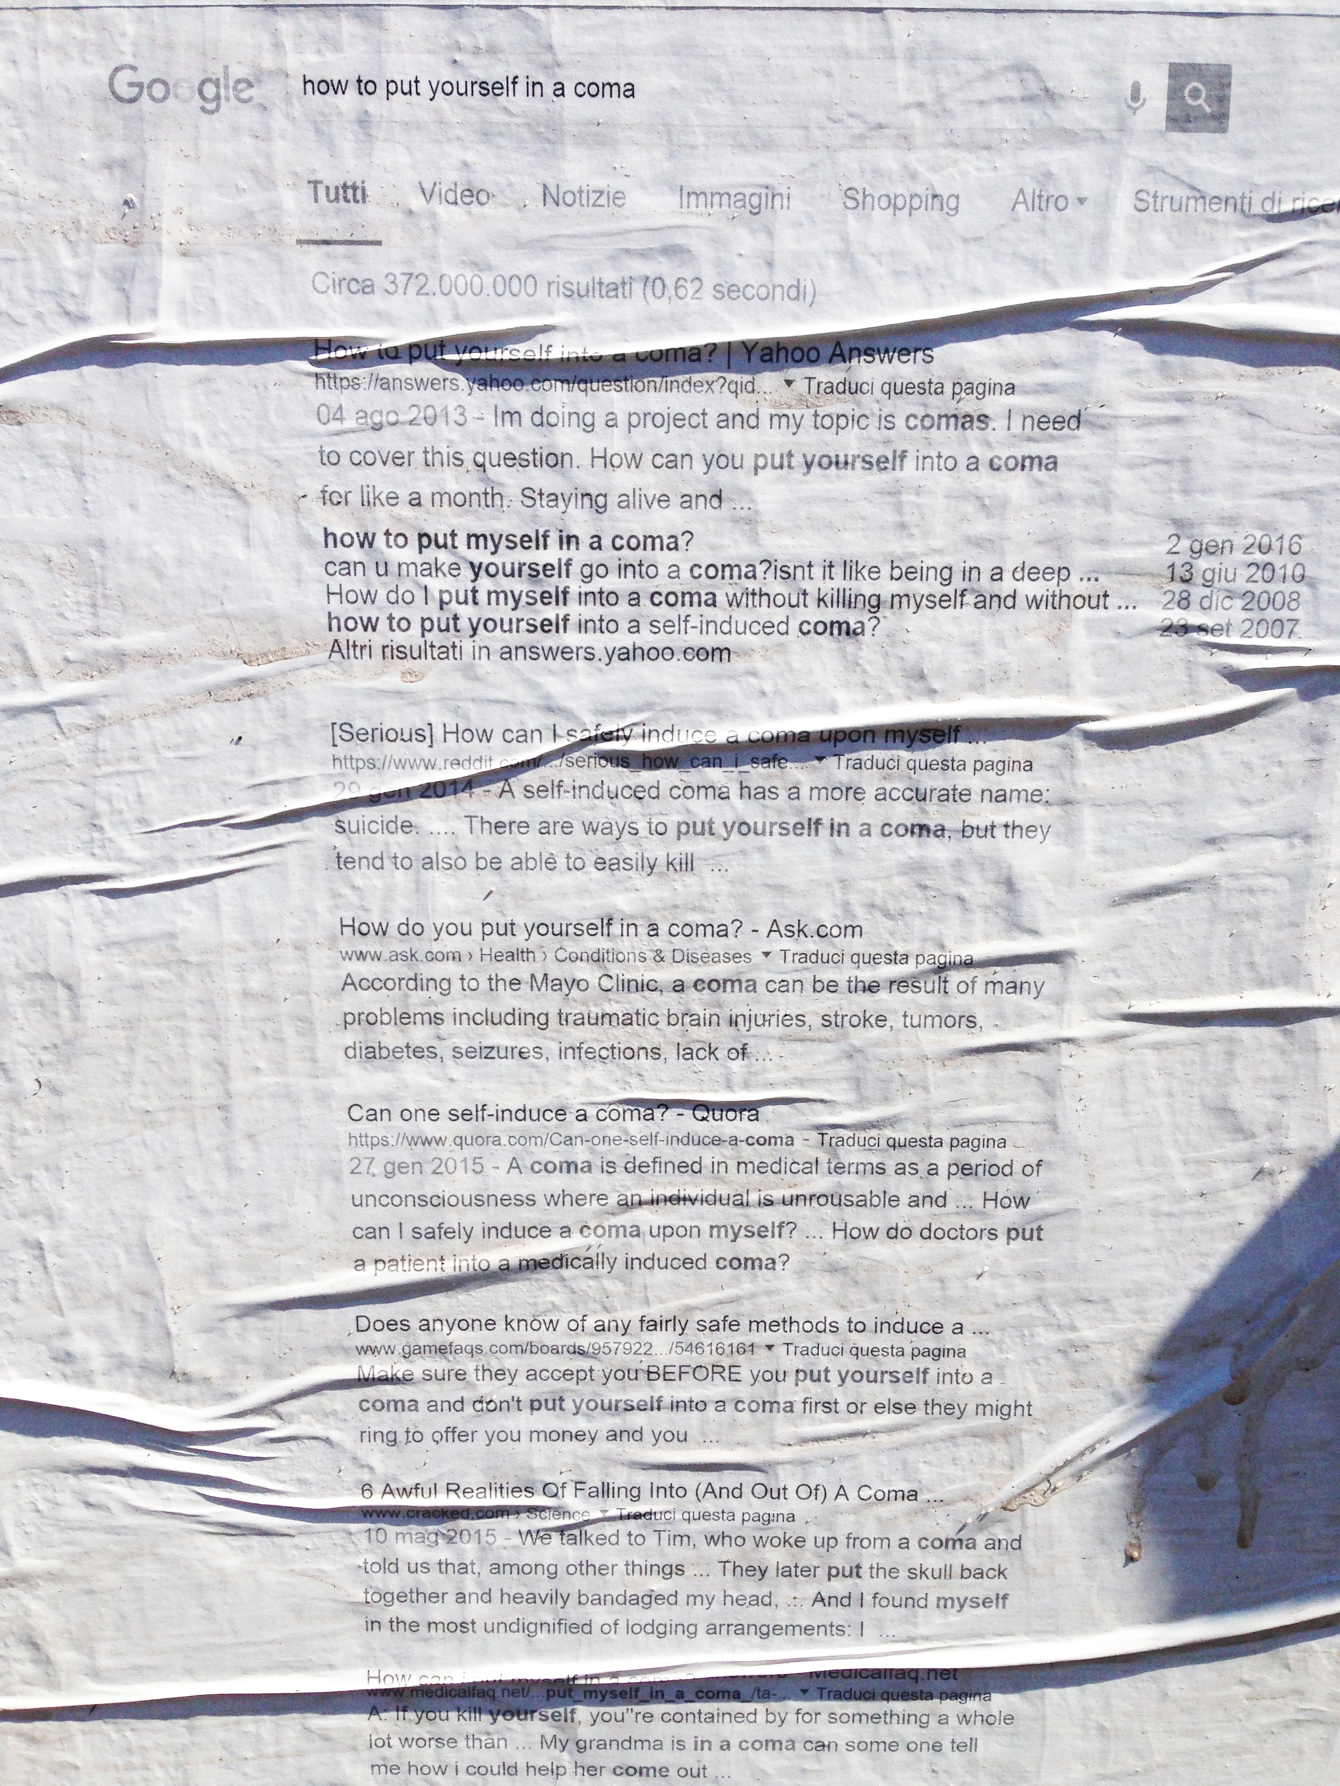 Google how to put yourself in a coma
Tutti Video Notizie Immagini Shopping Altro Strumenti di ricer
Circa 372.000.000 risultati (0,62 secondi)
How to put yourself into a coma? | Yahoo Answers
https://answers.yahoo.com/question/index?qid... Traduci questa pagina
04 ago 2013 - Im doing a project and my topic is comas. I need
to cover this question. How can you put yourself into a coma
for like a month. Staying alive and ...
how to put myself in a coma? 2 gen 2016
can u make yourself go into a coma?isnt it like being in a deep ... 13 giu 2010
How do I put myself into a coma without killing myself and without ... 28 dic 2008
how to put yourself into a self-induced coma? 23 set 2007
Altri risultati in answers.yahoo.com
[Serious] How can I safely induce a coma upon myself ...
https://www.reddit.com/.../serious_how_can_i_safe... Traduci questa pagina
29 gen 2014 - A self-induced coma has a more accurate name:
suicide. .... There are ways to put yourself in a coma, but they
tend to also be able to easily kill ...
How do you put yourself in a coma? - Ask.com
www.ask.com › Health › Conditions & Diseases Traduci questa pagina
According to the Mayo Clinic, a coma can be the result of many
problems including traumatic brain injuries, stroke, tumors,
diabetes, seizures, infections, lack of ...
Can one self-induce a coma? - Quora
https://www.quora.com/Can-one-self-induce-a-coma - Traduci questa pagina
27 gen 2015 - A coma is defined in medical terms as a period of
unconsciousness where an individual is unrousable and ... How
can I safely induce a coma upon myself? ... How do doctors put
a patient into a medically induced coma?
Does anyone know of any fairly safe methods to induce a ...
www.gamefaqs.com/boards/957922.../54616161 Traduci questa pagina
Make sure they accept you BEFORE you put yourself into a
coma and don't put yourself into a coma first or else they might
ring to offer you money and you ...
6 Awful Realities Of Falling Into (And Out Of) A Coma ...
www.cracked.com › Science Traduci questa pagina
10 mag 2015 - We talked to Tim, who woke up from a coma and
told us that, among other things ... They later put the skull back
together and heavily bandaged my head, ... And I found myself
in the most undignified of lodging arrangements: I ...
How can myself in a coma? Medicalfaq.net
www.medicalfaq.net/...put_myself_in_a_coma_/ta-... Traduci questa pagina
A: If you kill yourself, you"re contained by for something a whole
lot worse than ... My grandma is in a coma can some one tell
me how i could help her come out ...